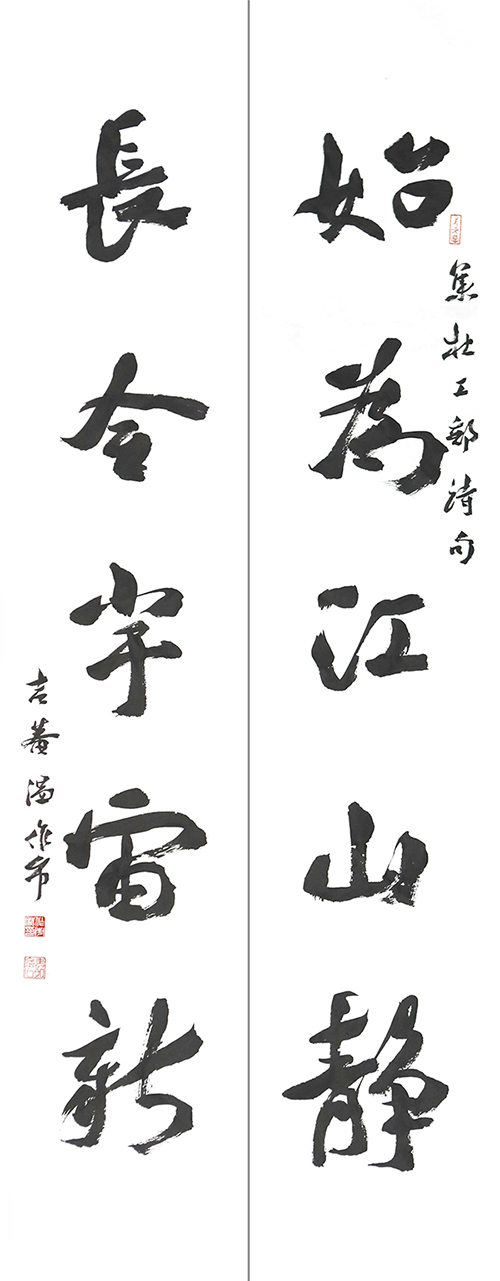 始為江山靜
集杜工部詩句
長令宇宙新
菴温作市